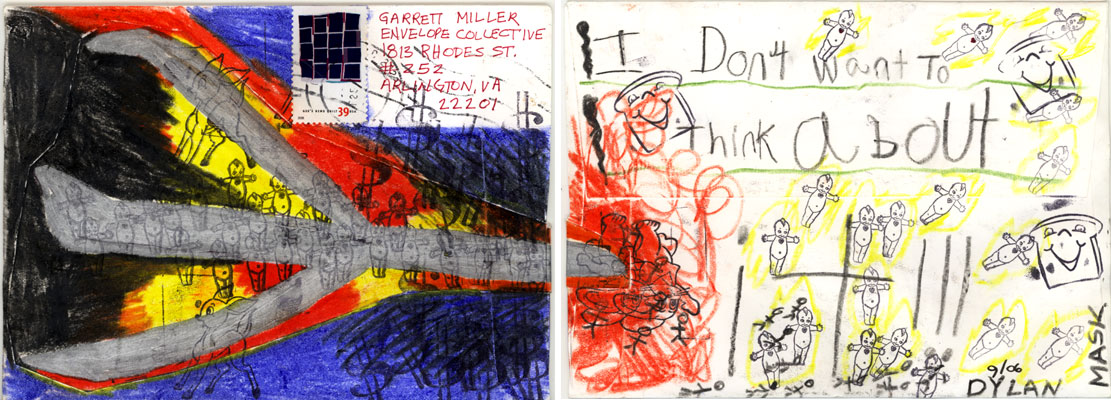 GARRETT MILLER
ENVELOPE COLLECTIVE
1813 RHODES ST.
# 252
ARLINGTON, VA
22201
39
I Dont want To
think about
9/06
DYLAN
MASK